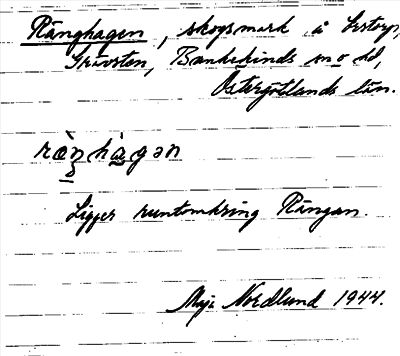 Ränghagen, skogsmark å
Bankekinds sn o hd,
Östergötlands län.
rä̀nhàgən
Ligger runtomkring Rängan.
Maja Nordlund 1944.